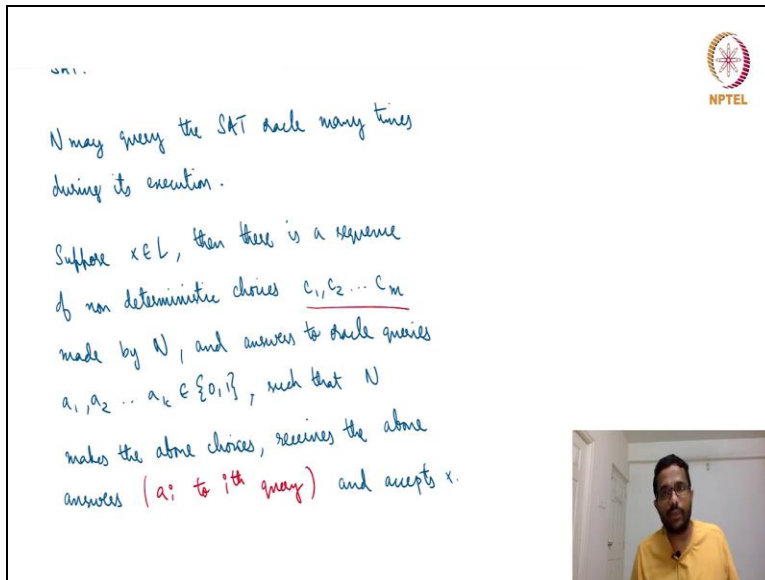 SAT.
NPTEL
N may query the SAT oracle many times
during its execution.
Suppose x ∈ L, then there is a sequence
of non deterministic choices c₁, c₂ ... cₘ
made by N, and answers to oracle queries
a₁, a₂ .. aₖ ∈ {0,1}, such that N
makes the above choices, receives the above
answers (aᵢ to iᵗʰ query) and accepts x.